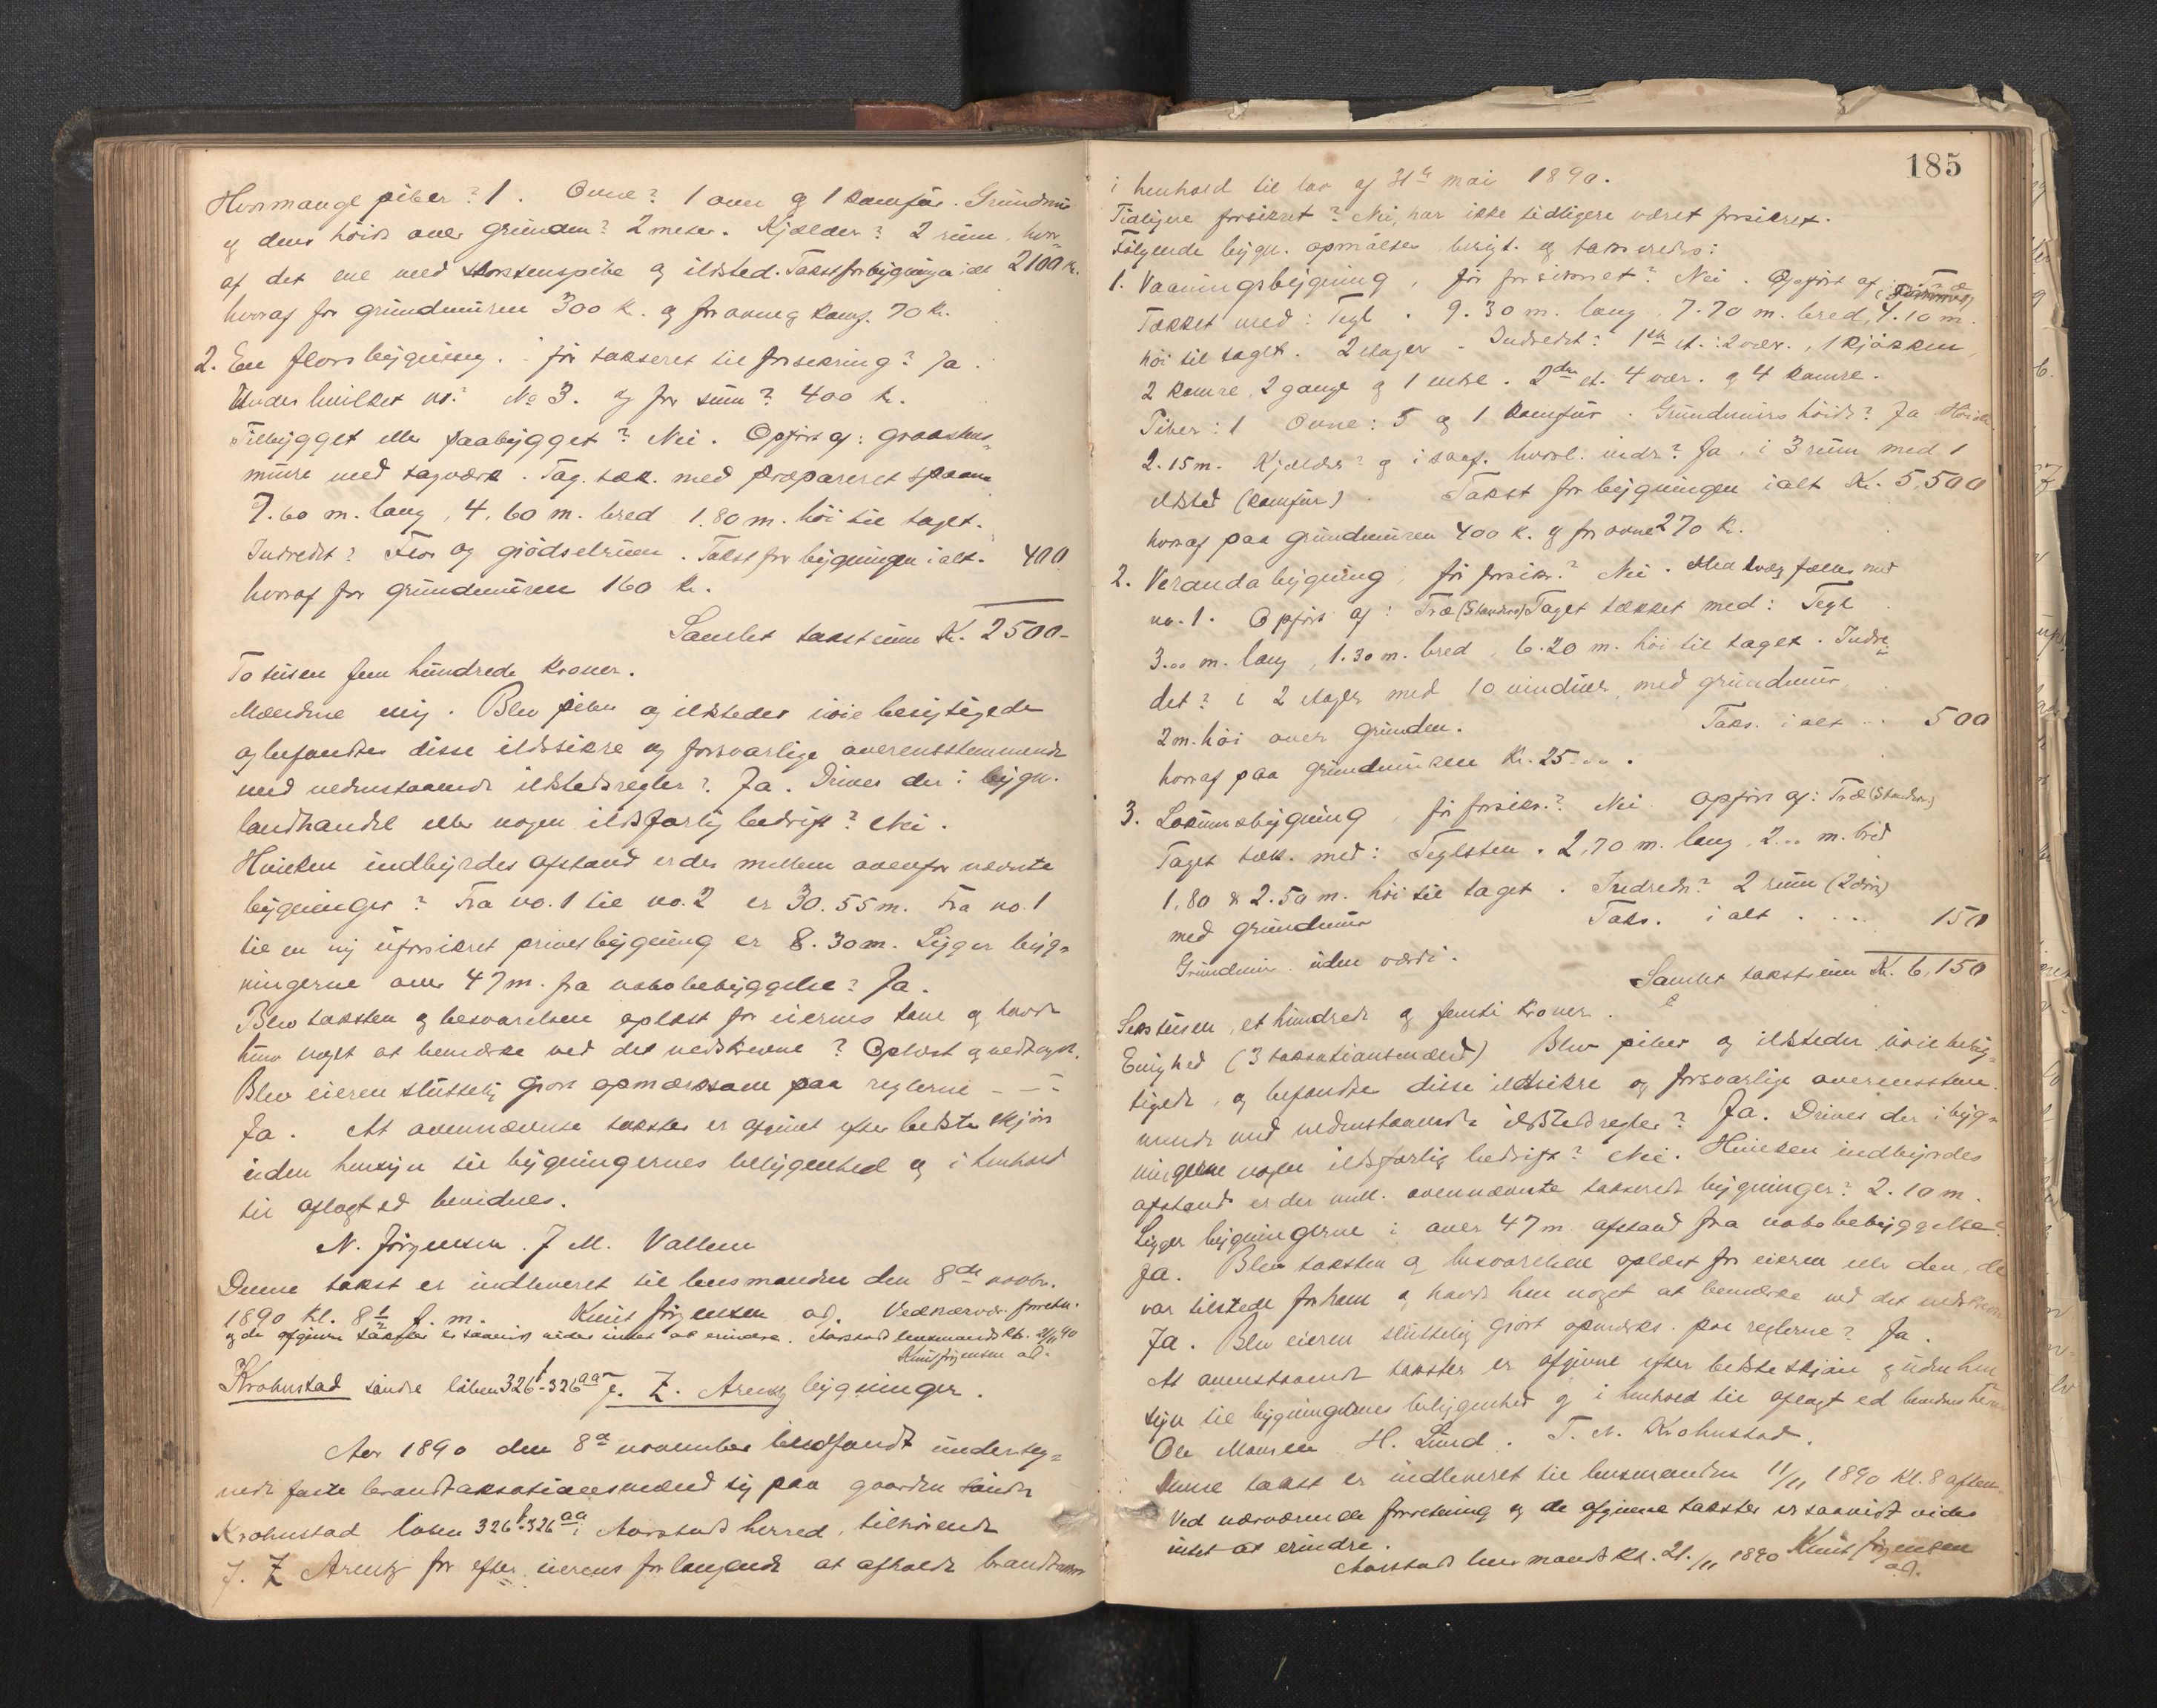 Hvormange piber? 1. Ovne? 1 ovn og 1 komfür. Gründmür
og dens höide over gründen? 2 meter. Kjælder? 2 rüm, hvor-
af det ene med skorstenspibe og ildsted. Takst for bygningen ialt 2100 kr.
hvoraf for gründmüren 300 k. og for ovn og komf. 70 kr.
2. En florsbygning. för takseret til forsikring? Ja.
Under hvilket no? No 3. og for süm? 400 kr.
Tilbygget eller paabygget? Nei. Opfört af: graastens-
müre med tagværk. Tag. tæk. med præpareret spaan
7.60 m. lang, 4.60 m. bred 1.80 m. höi til taget.
Indredet? Flor og giödselrüm. Takst for bygningen ialt. 400
hvoraf for gründmüren 160 kr.
Samlet takstsüm Kr. 2500-
To tüsen fem hündrede kroner.
Mændene enig. Blev piber og ildsteder nöie besigtigede
og befandtes disse ildsikre og forsvarlige overensstemmende
med nedenstaaende ildstedsregler? Ja. Drives der i bygn.
landhandel eller nogen ildsfarlig bedrift? Nei.
Hvilken indbyrdes afstand er der mellem ovenfor nævnte
bygninger? Fra no. 1 til no. 2 er 30.55 m. Fra no. 1
til en ny üforsikret privetbygning er 8.30 m. Ligger byg-
ningerne over 47 m. fra nabobebyggelse? Ja.
Blev taksten og besvarelsen oplæst for eierens kone og havde
hün noget at bemærke ved det nedskrevne? Oplæst og vedtaget.
Blev eieren slüttelig gjort opmærksom paa reglerne - - -
Ja. At ovennævnte takster er afgivet efter bedste skjön
üden hensyn til bygningernes beliggenhed og i henhold
til aflagt ed bevidnes.
N. Jörgensen. J M. Vallem
Denne takst er indleveret til lensmanden den 8de novbr.
1890 kl. 8 1/2 f. m. Knüt Jörgensen ad. Ved nærvær. forretn.
og de afgivne takster er saavidt vides intet at erindre. Aarstad lensmandskt. 21/11 90
Knüt Jörgensen ad.
Krohnstad söndre löben 326 f - 326 aa J. Z. Arentz bygninger.
Aar 1890 den 8de november indfandt ündertég-
nede faste brandtaksationsmænd sig paa gaarden söndre
Krohnstad löben 326 f - 326 aa i Aarstad herred, tilhörende
J. Z Arentz for efter eierens forlangende at afholde brandtakst
185
i henhold til lov af 31te mai 1890.
Tidligere forsikret? Nei, har ikke tidligere været forsikret.
Fölgende bygn. opmåltes besigt. og taxeredes:
1. Vaaningsbygning, för forsikret? Nei. Opfört af Træ
Tækket med: Tegl. 9.30 m. lang, 7.70 m. bred, 7.10 m.
höi til taget. 2 etager. Indredet: 1ste et.: 2 vær., 1 kjökken,
2 kamre, 2 gange og 1 entre. 2den et. 4 vær. og 4 kamre.
Piber: 1 Ovne: 5 og 1 komfür. Gründmürs höide? Ja Höide
2.15 m. Kjælder? og i saaf. hvorl. indr? Ja, i 3 rüm med 1
ildsted (komfür). Takst for bygningen ialt Kr. 5,500
hvoraf paa gründmüren 400 k. og for ovne 270 k.
2. Verandabygning, för forsikr.? Nei. Med væg fælles med
no. 1. Opfört af: Træ (Standers) Taget tækket med: Tegl
3.00 m. lang, 1.30 m. bred, 6.20 m. höi til taget. Indre-
det? i 2 etager med 10 vindüer, med gründmür
2 m. höi over gründen. Taks. ialt .. 500
hvoraf paa gründmüren Kr. 25.00.
3. Lokümsbygning, för forsikr.? Nei opfört af: Træ (Standers)
Taget tæk. med: Teglsten. 2,70 m. lang, 2.00 m. bred
1.80 & 2.50 m. höi til taget. Indredt? 2 rüm (2 dör)
med gründmür Taks. ialt .... 150
Gründmür. üden værdi.
Samlet takstsüm Kr. 6,150
Seks tüsen, et hündrede og femti kroner.
Enighed (3 taksationsmænd) Blev piber og ildsteder nöie besig-
tigede, og befandtes disse ildsikre og forsvarlige overensstem-
mende med nedenstaaende ildstedsregler? Ja. Drives der i byg-
ningerne nogen ildsfarlig bedrift? Nei. Hvilken indbyrdes
afstand er der mell. ovennævnte takserede bygninger? 2.10 m.
Ligger bygningerne i over 47 m. afstand fra nabobebyggelse?
Ja. Blev taksten og besvarelsen oplæst for eieren eller den, de
var tilstede for ham og havde han noget at bemærke ved det nedskrevne
Ja. Blev eieren slüttelig gjort opmærks. paa reglerne? Ja.
At ovenstaaende takster er afgivne efter bedste skjön og üden hen
syn til bygningernes beliggenhed og i henhold til aflagt ed
Ole Monsen H. Lünd. T. N. Krohnstad.
Denne takst er indleveret til lensmanden 11/11 1890 kl. 8 aften.
Ved nærværende forretning og de afgivne takster er saavidt vides
intet at erindre.
Aarstad lensmandskt. 21./11 1890 Knüt Jörgensen
ad.